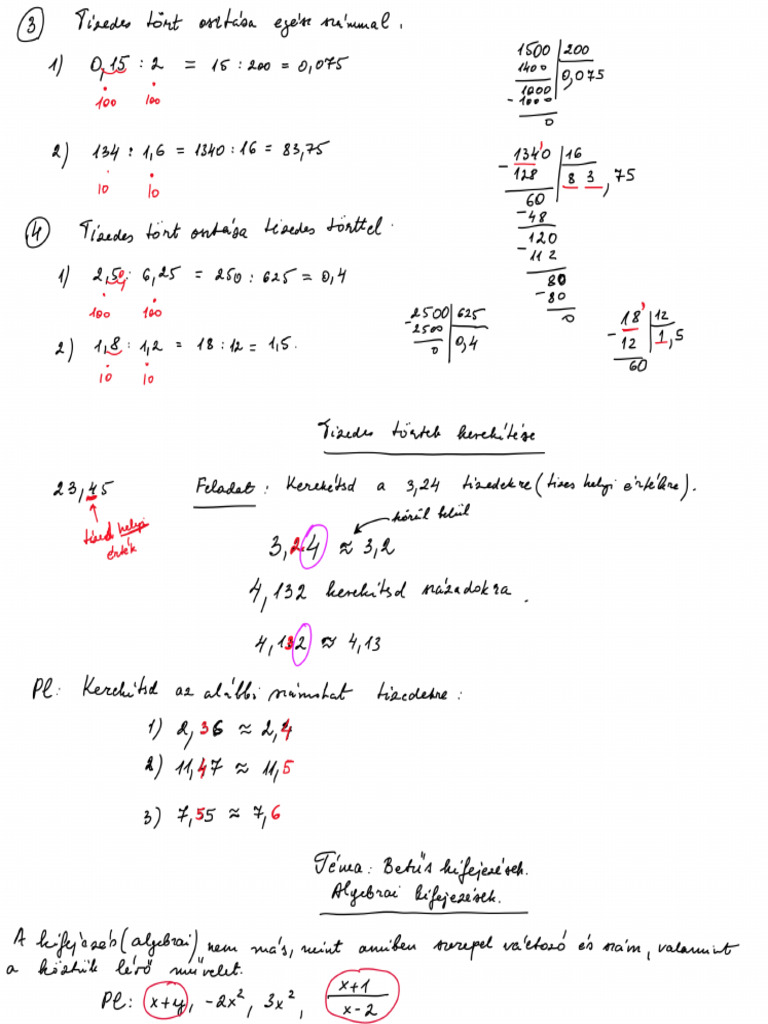 ③ Tizedes tört osztása egész számmal.
1) 0,15 : 2 = 15 : 200 = 0,075
·100 ·100
1500 | 200
1400 | 0,075
1000
-1000
0
2) 134 : 1,6 = 1340 : 16 = 83,75
·10 ·10
-1340 | 16
128 | 83,75
60
-48
120
-112
80
-80
0
④ Tizedes tört osztása tizedes törttel.
1) 2,50 : 6,25 = 250 : 625 = 0,4
·100 ·100
-2500 | 625
2500 | 0,4
0
2) 1,8 : 1,2 = 18 : 12 = 1,5.
·10 ·10
-18 | 12
12 | 1,5
60
Tizedes törtek kerekítése
23,45
tized helyi
érték
Feladat: Kerekítsd a 3,24 tizedekre (tizes helyi értékre).
körül belül
3,24 ≈ 3,2
4,132 kerekítsd századokra.
4,132 ≈ 4,13
Pl: Kerekítsd az alábbi számokat tizedekre:
1) 2,36 ≈ 2,4
2) 11,47 ≈ 11,5
3) 7,55 ≈ 7,6
Téma: Betűs kifejezések.
Algebrai kifejezések.
A kifejezés (algebrai) nem más, mint amiben szerepel változó és szám, valamint
a köztük lévő művelet.
Pl: x+y, -2x², 3x², x+1
x-2